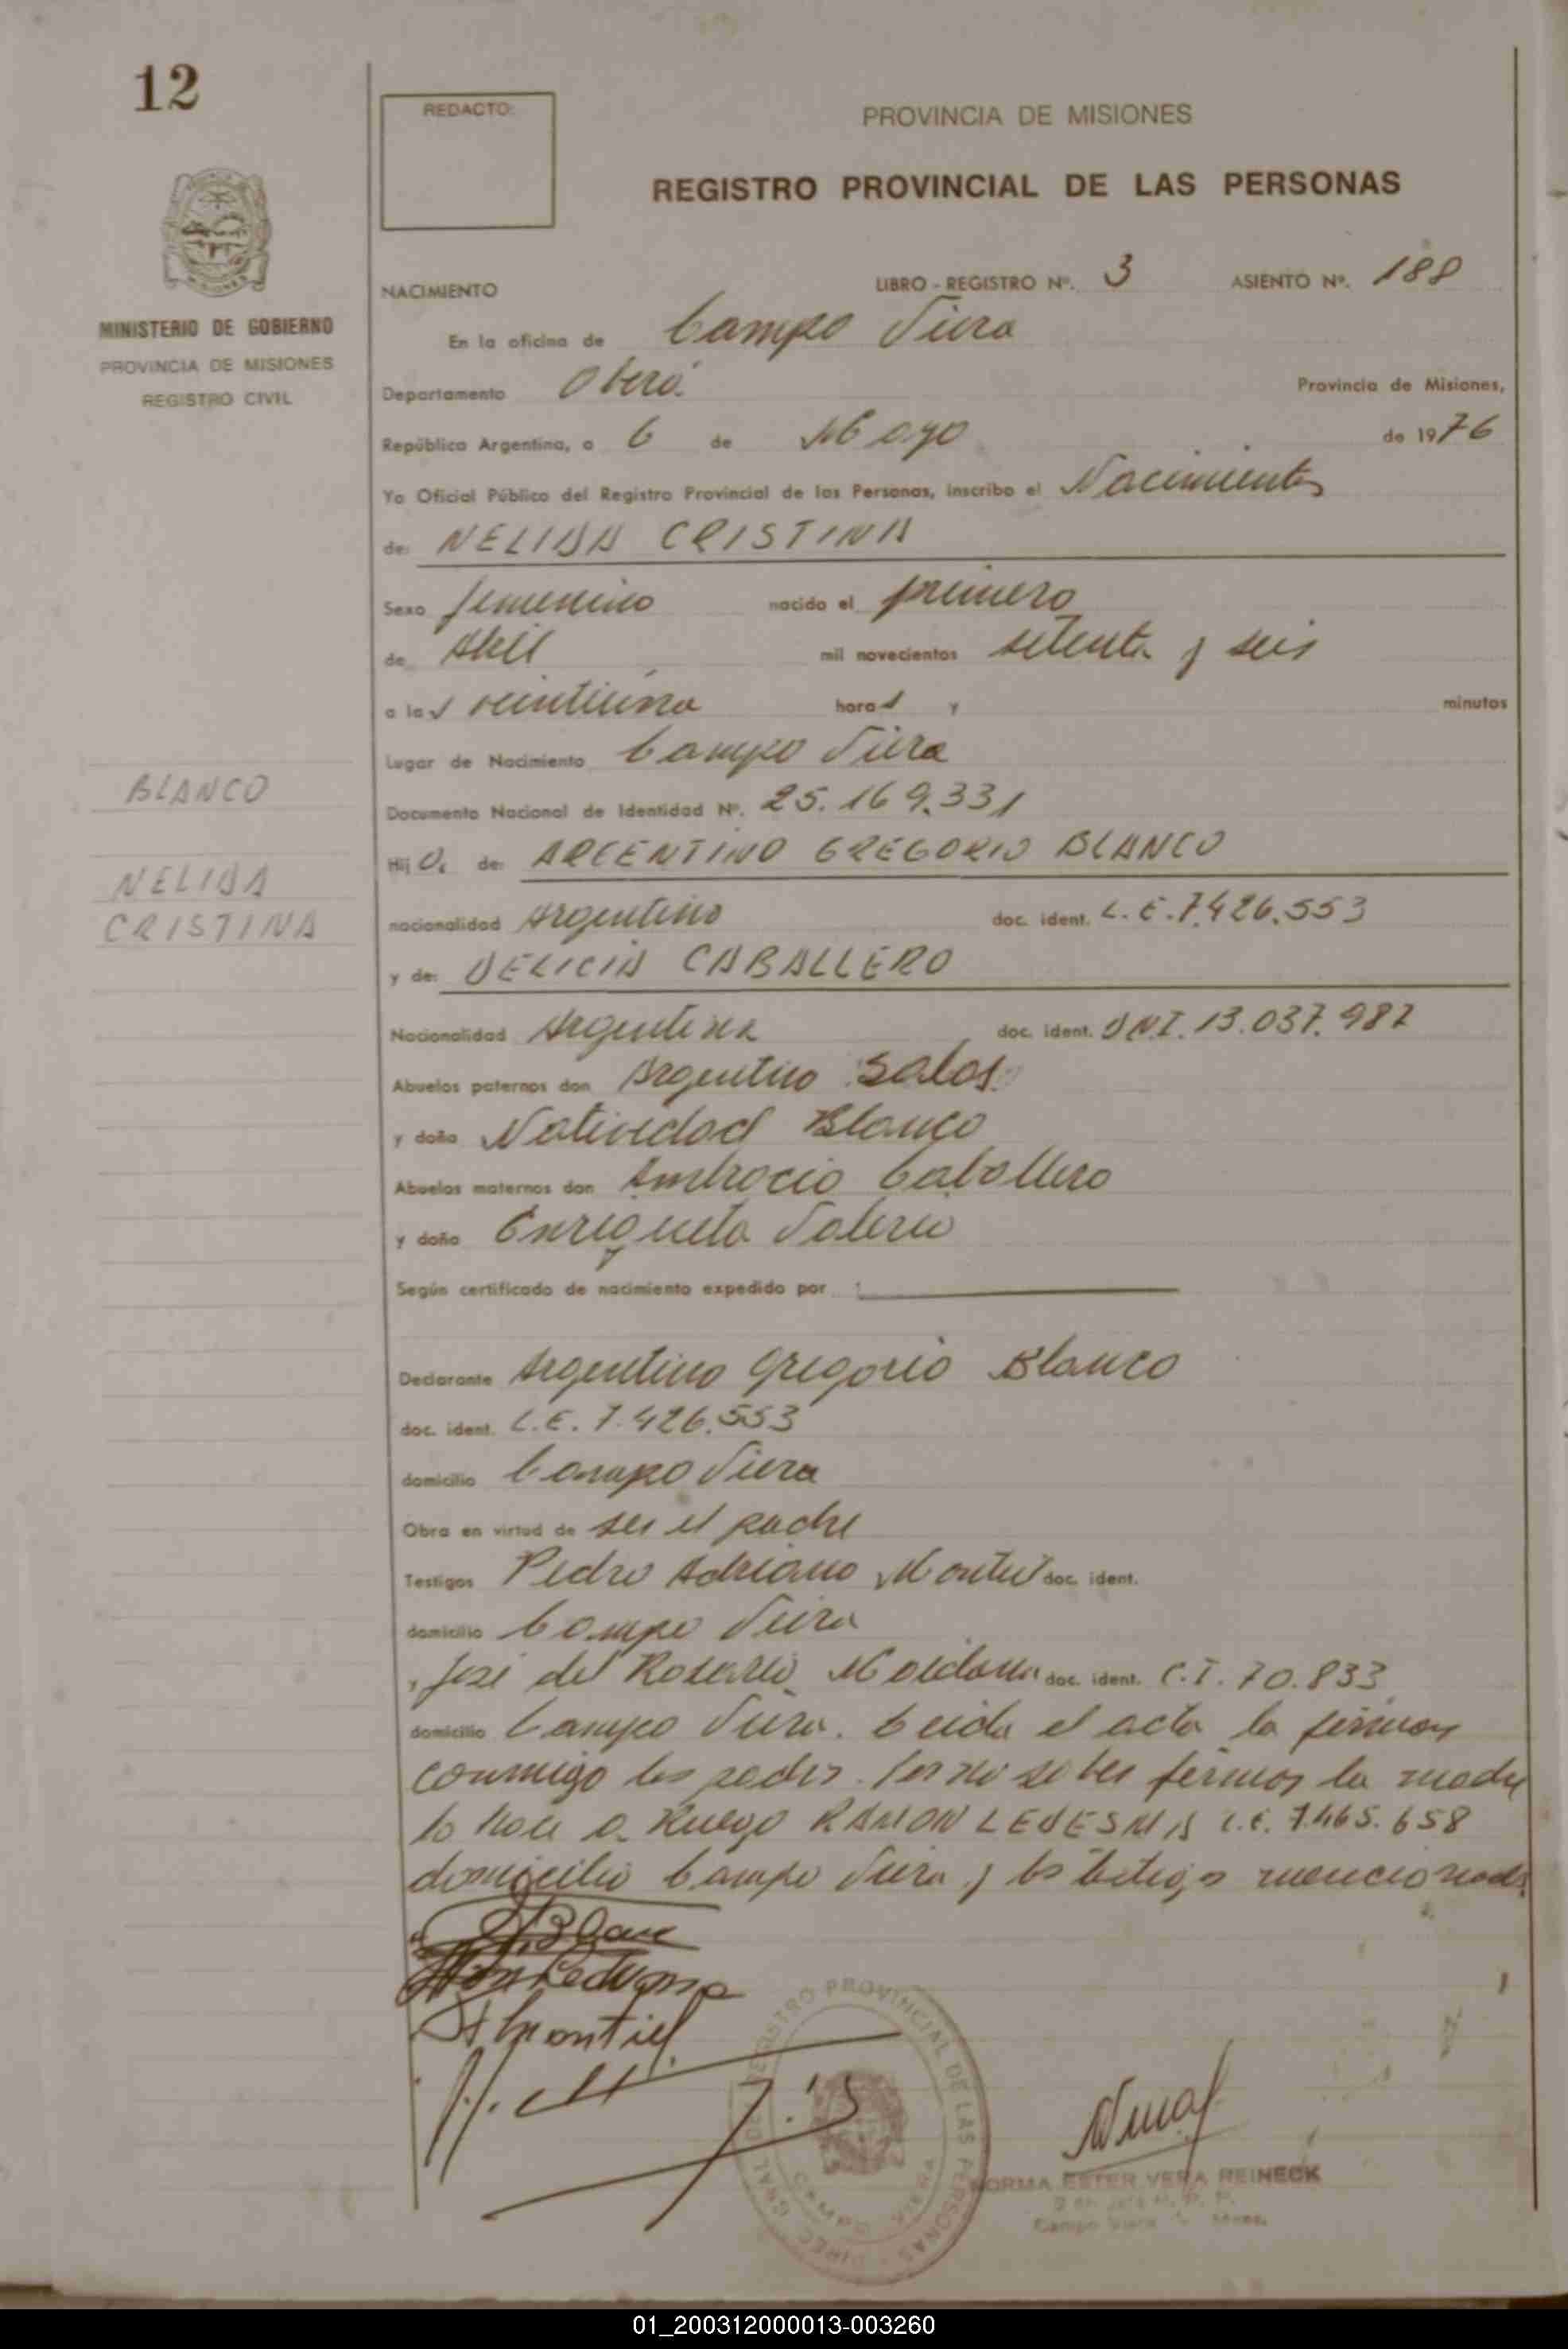 12
REDACTO:
PROVINCIA DE MISIONES
REGISTRO PROVINCIAL DE LAS PERSONAS
MINISTERIO DE GOBIERNO
PROVINCIA DE MISIONES
REGISTRO CIVIL
NACIMIENTO LIBRO - REGISTRO Nº. 3 ASIENTO Nº. 188
En la oficina de Campo Viera
Departamento Oberá Provincia de Misiones,
República Argentina, a 6 de Mayo de 1976
Yo Oficial Público del Registro Provincial de las Personas, inscribo el Nacimiento
de: NELIDA CRISTINA
Sexo femenino nacido el primero
de Abril mil novecientos setenta y seis
a las veintiuna horas y minutos
Lugar de Nacimiento Campo Viera
Documento Nacional de Identidad Nº. 25.169.331
BLANCO
NELIDA
CRISTINA
Hija de: ARGENTINO GREGORIO BLANCO
nacionalidad Argentino doc. ident. L.E. 7.426.553
y de: DELICIA CABALLERO
Nacionalidad Argentina doc. ident. D.N.I. 13.037.987
Abuelos paternos don Argentino
y doña Natividad Blanco
Abuelos maternos don Ambrocio Caballero
y doña Enriqueta
Según certificado de nacimiento expedido por
Declarante Argentino Gregorio Blanco
doc. ident. L.E. 7.426.553
domicilio Campo Viera
Obra en virtud de ser el padre
Testigos Pedro Adriano Montiel doc. ident.
domicilio Campo Viera
, José del Rosario Maidana doc. ident. C.I. 70.833
domicilio Campo Viera. Leida el acta la firman
conmigo los padres. Por no saber firmar la madre
lo hace a Ruego RAMON LEDESMA L.E. 7.465.658
domicilio Campo Viera y los testigos mencionados
Montiel
DIREC. GRAL. DE REGISTRO PROVINCIAL DE LAS PERSONAS
CAMPO VIERA
NORMA ESTER VERA REINECK
Campo Viera
01_200312000013-003260